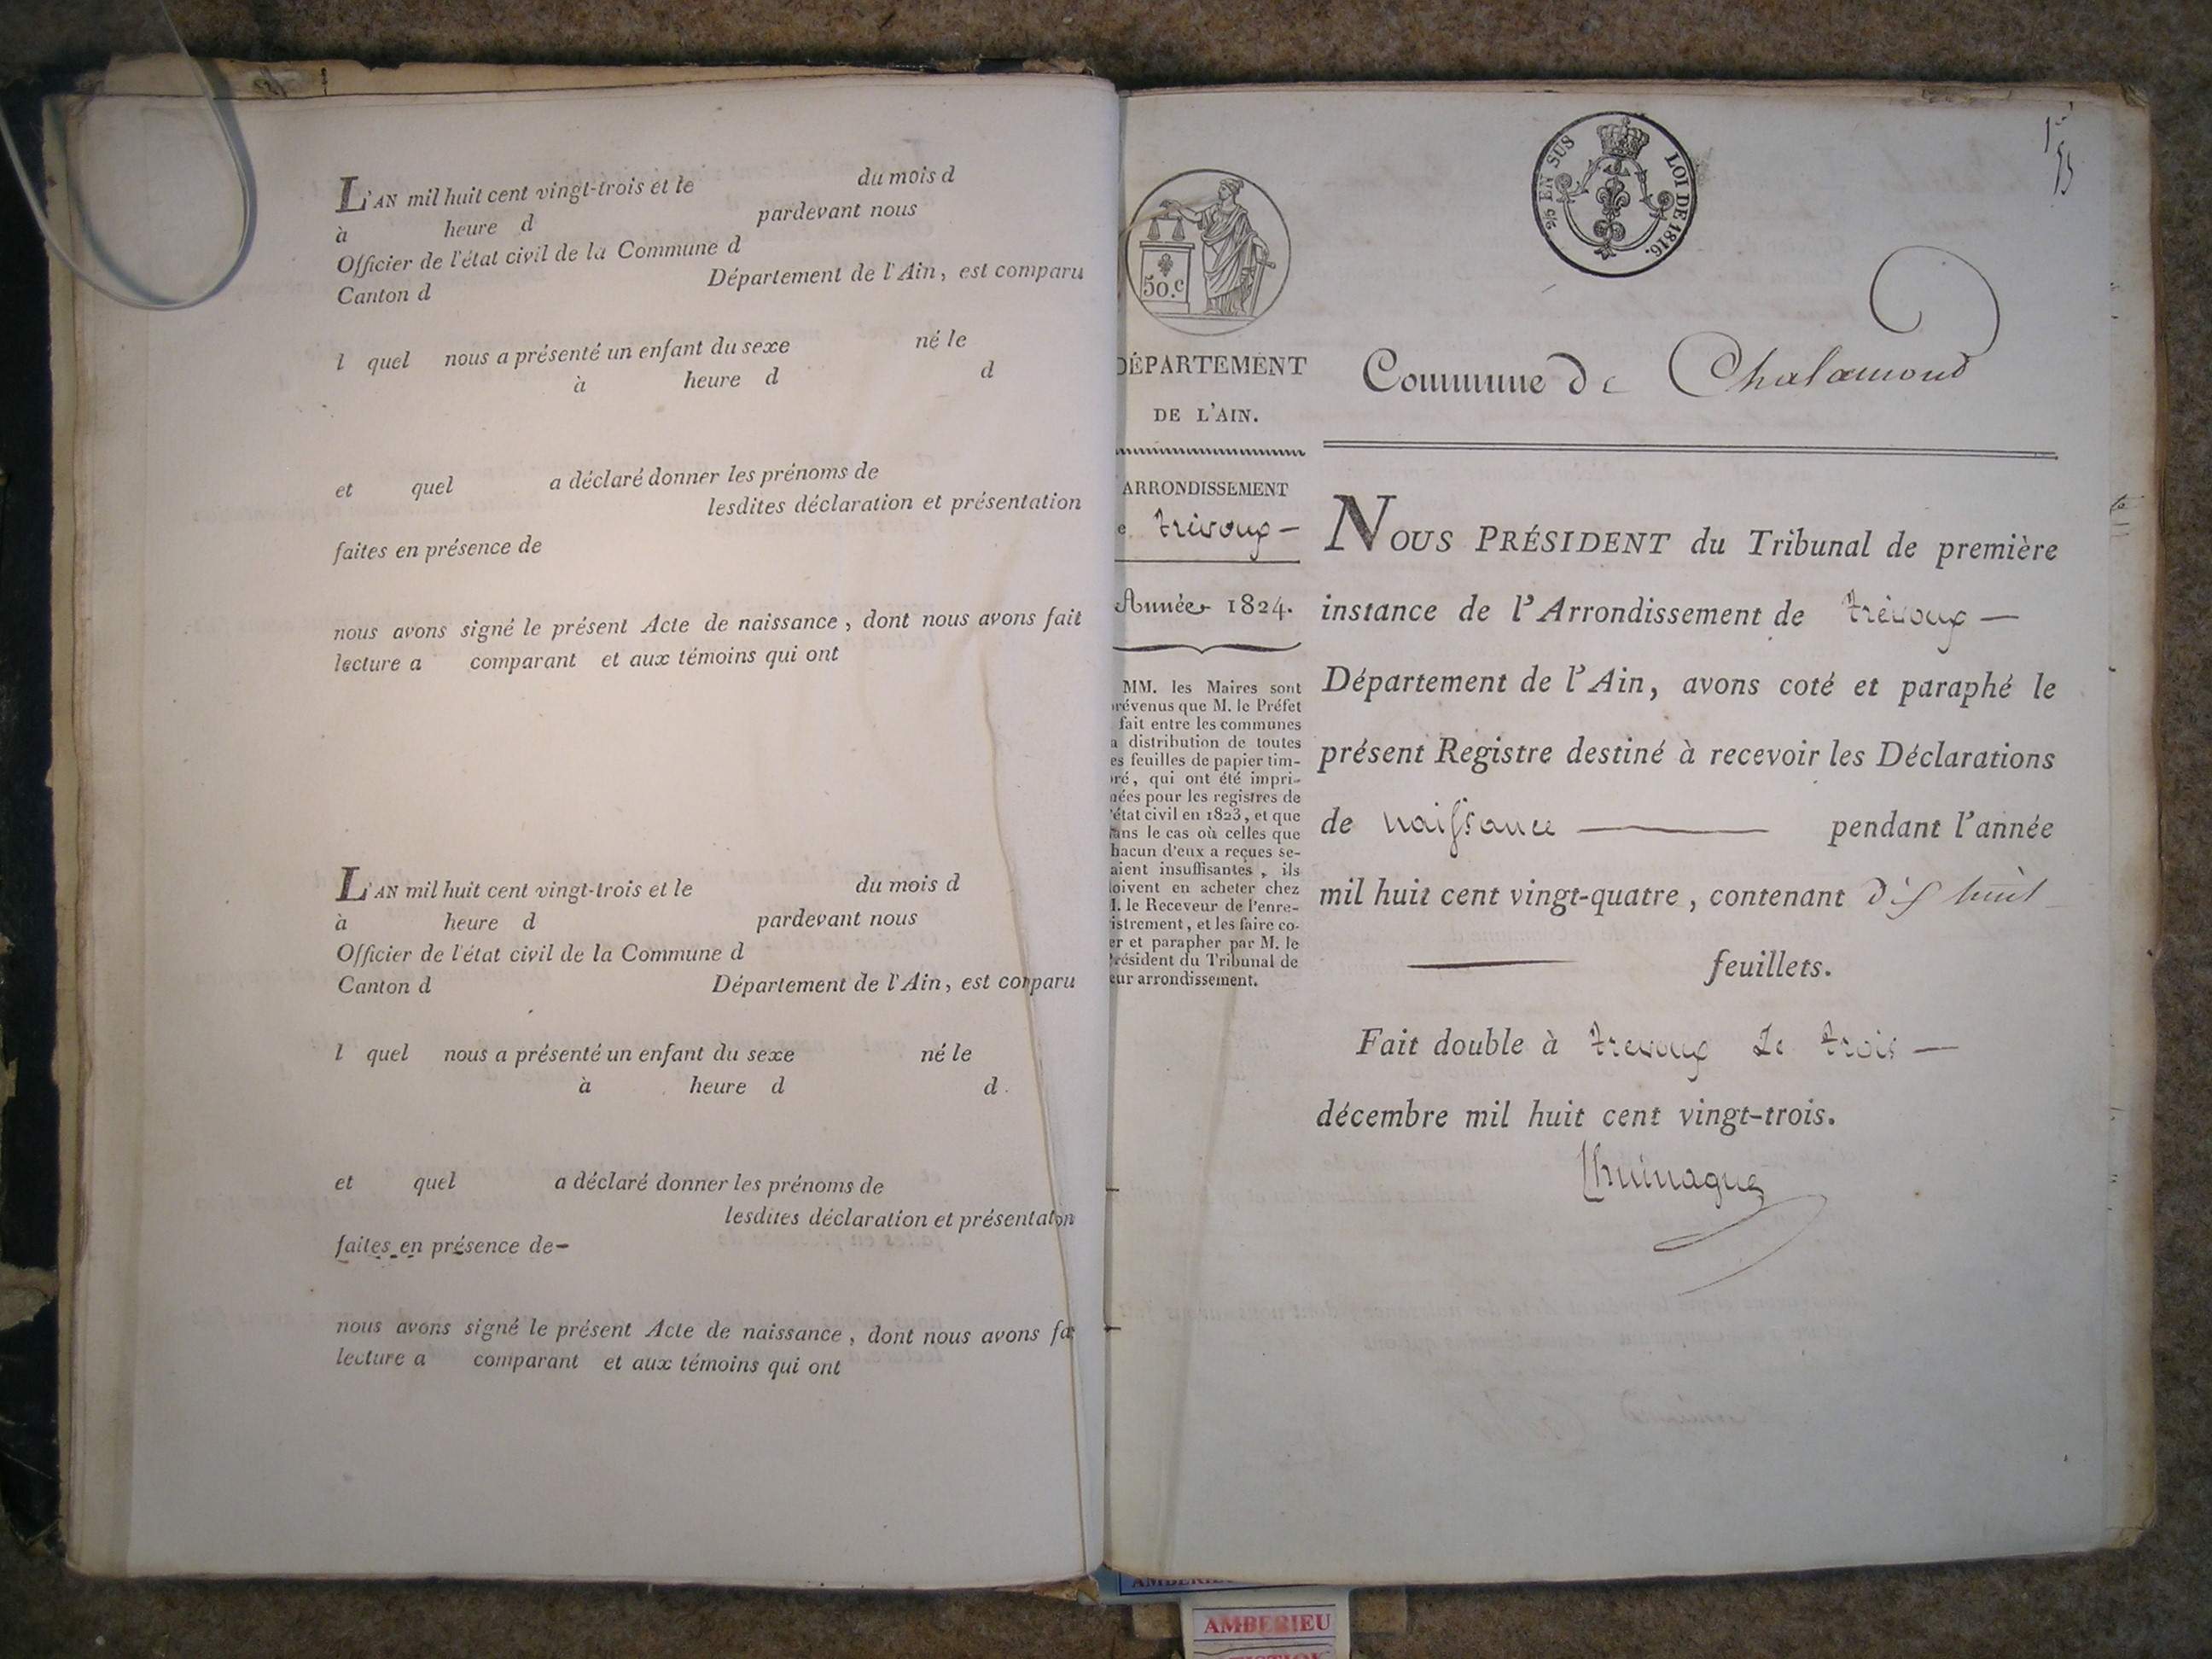 L'AN mil huit cent vingt-trois et le du mois d
à heure d pardevant nous
Officier de l'état civil de la Commune d
Canton d Département de l'Ain, est comparu
l quel nous a présenté un enfant du sexe né le
à heure d d
et quel a déclaré donner les prénoms de
lesdites déclaration et présentation
faites en présence de
nous avons signé le présent Acte de naissance, dont nous avons fait
lecture a comparant et aux témoins qui ont
L'AN mil huit cent vingt-trois et le du mois d
à heure d pardevant nous
Officier de l'état civil de la Commune d
Canton d Département de l'Ain, est comparu
l quel nous a présenté un enfant du sexe né le
à heure d d
et quel a déclaré donner les prénoms de
lesdites déclaration et présentaton
faites en présence de-
nous avons signé le présent Acte de naissance, dont nous avons fa
lecture a comparant et aux témoins qui ont
50.c
EN SUS LOI DE 1816.
1er
DÉPARTEMENT
DE L'AIN.
ARRONDISSEMENT
e trévoux —
Année 1824.
MM. les Maires sont
révenus que M. le Préfet
fait entre les communes
a distribution de toutes
es feuilles de papier tim-
ré, qui ont été impri-
mées pour les registres de
l'état civil en 1823, et que
dans le cas où celles que
hacun d'eux a reçues se-
aient insuffisantes, ils
oivent en acheter chez
M. le Receveur de l'enre-
istrement, et les faire co-
er et parapher par M. le
Président du Tribunal de
eur arrondissement.
Commune de Chalamond
NOUS PRÉSIDENT du Tribunal de première
instance de l'Arrondissement de trévoux —
Département de l'Ain, avons coté et paraphé le
présent Registre destiné à recevoir les Déclarations
de naissance — pendant l'année
mil huit cent vingt-quatre, contenant dix huit
— feuillets.
Fait double à trevoux Le trois —
décembre mil huit cent vingt-trois.
AMBERIEU